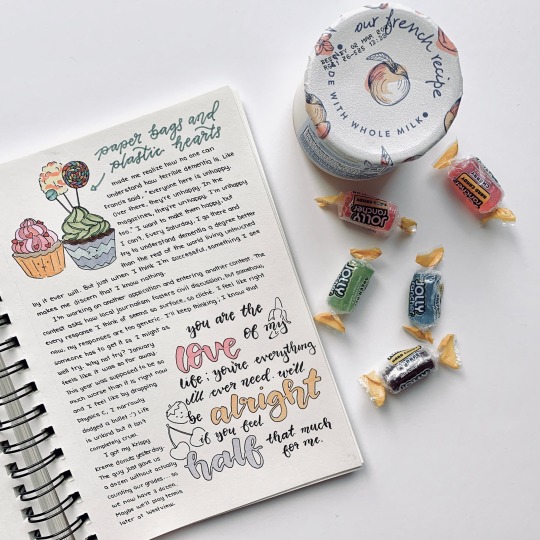 paper bags and
plastic hearts
made me realize how no one can
understand how terrible dementia is. Like
Francis said, "everyone here is unhappy.
Over there, they're unhappy. In the
magazines, they're unhappy. I'm unhappy
too." I want to make them happy but
I can't. Every Saturday, I go there and
try to understand dementia a degree better
than the rest of the world living untouched
by it ever will. But just when I think I'm successful, something I see
makes me discern that I know nothing.
I'm working on another application and entering another contest. The
contest asks how local journalism fosters civil discussion, but somehow,
every response I think of seems so surface, so cliché. I feel like right
now, my responses are too generic. I'll keep thinking, I know that
someone has to get it so I might as
well try, why not try? January
feels like it was so far away.
This year was supposed to be so
much worse than it is right now
and I feel like by dropping
Physics C, I narrowly
dodged a bullet :) Life
is unkind but it isn't
completely cruel.
I got my Krispy
Kreme donuts yesterday.
The guy just gave us
a dozen without actually
counting our grades... so
we now have a dozen.
Maybe we'll play tennis
later at Westview.
you are the
love of my
life; you're everything
i'll ever need. we'll
be alright
if you feel
half that much
for me.
our french recipe
MADE WITH WHOLE MILK
BEST BY 02 MAR
JOLLY
RANCHER
JOLLY
RANCHER
JOLLY
JOLLY